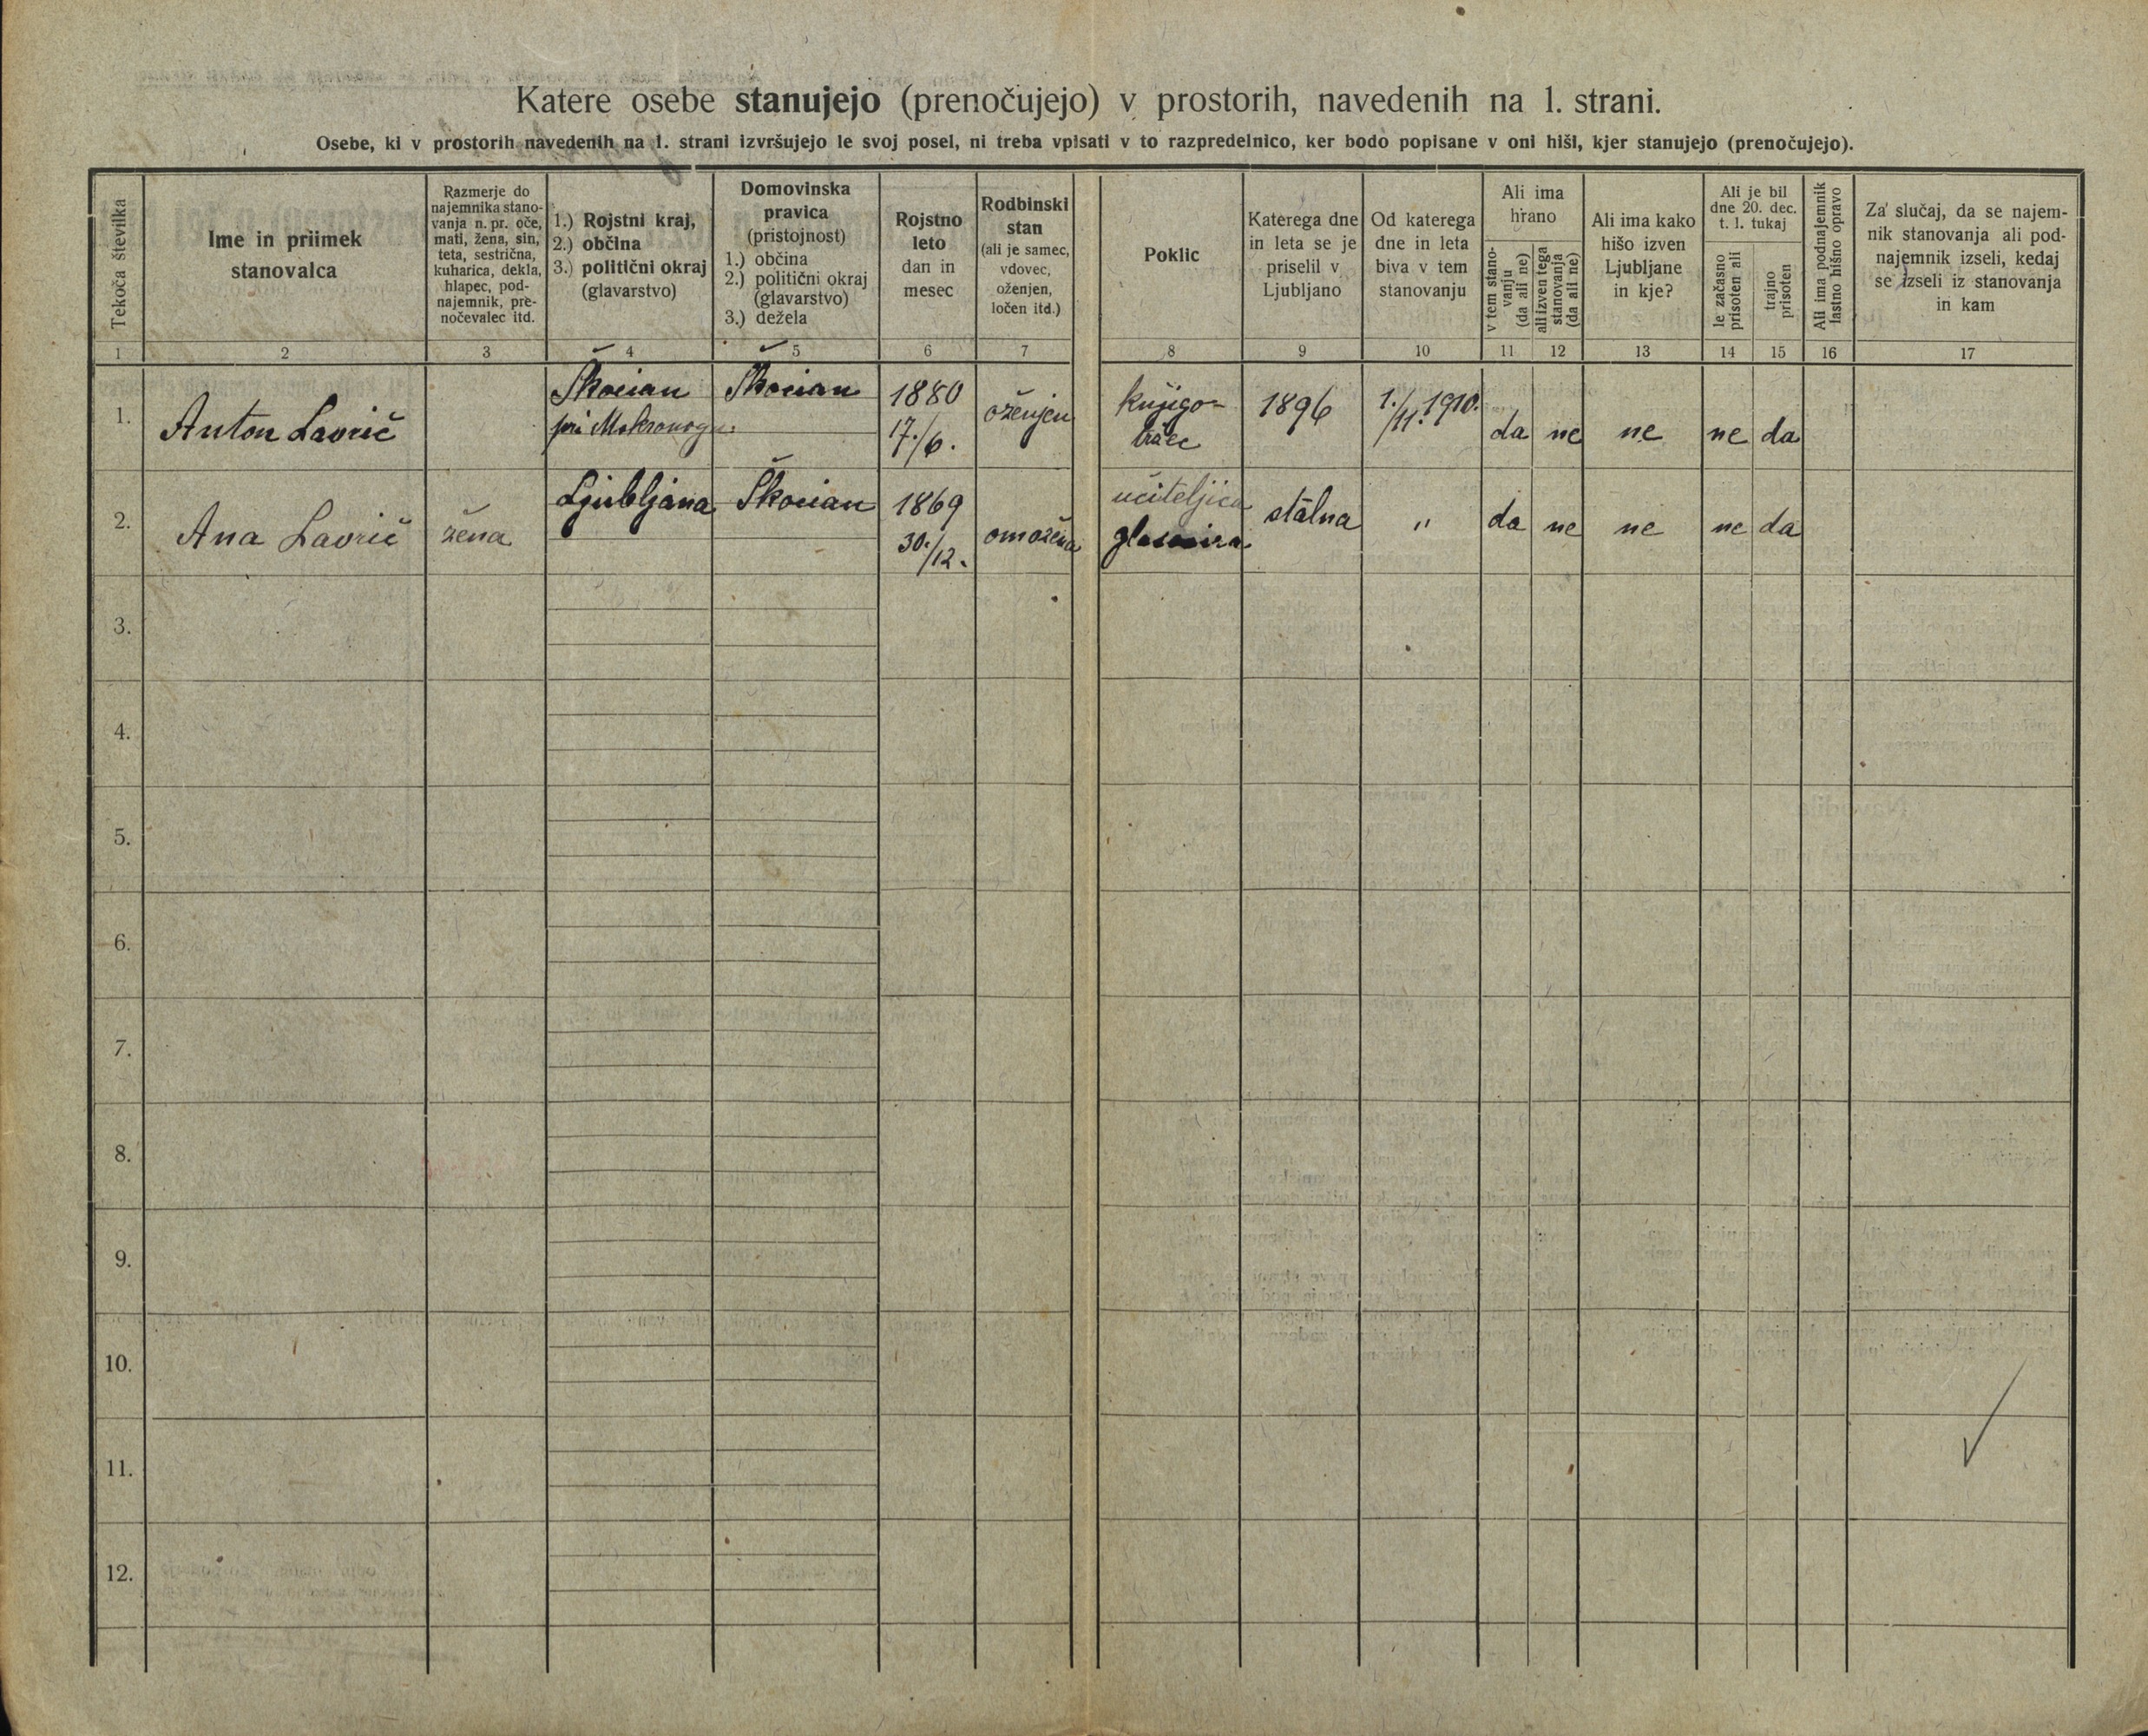 Katere osebe stanujejo (prenočujejo) v prostorih, navedenih na 1. strani.
Osebe, ki v prostorih navedenih na 1. strani izvršujejo le svoj posel, ni treba vpisati v to razpredelnico, ker bodo popisane v oni hiši, kjer stanujejo (prenočujejo).
Tekoča številka
Ime in priimek
stanovalca
Razmerje do
najemnika stano-
vanja n. pr. oče,
mati, žena, sin,
teta, sestrična,
kuharica, dekla,
hlapec, pod-
najemnik, pre-
nočevalec itd.
1.) Rojstni kraj,
2.) občina
3.) politični okraj
(glavarstvo)
Domovinska
pravica
(pristojnost)
1.) občina
2.) politični okraj
(glavarstvo)
3.) dežela
Rojstno
leto
dan in
mesec
Rodbinski
stan
(ali je samec,
vdovec,
oženjen,
ločen itd.)
Poklic
Katerega dne
in leta se je
priselil v
Ljubljano
Od katerega
dne in leta
biva v tem
stanovanju
Ali ima
hrano
v tem stano-
vanju
(da ali ne)
ali izven tega
stanovanja
(da ali ne)
Ali ima kako
hišo izven
Ljubljane
in kje?
Ali je bil
dne 20. dec.
t. l. tukaj
le začasno
prisoten ali
trajno
prisoten
Ali ima podnajemnik
lastno hišno opravo
Za slučaj, da se najem-
nik stanovanja ali pod-
najemnik izseli, kedaj
se izseli iz stanovanja
in kam
1 2 3 4 5 6 7 8 9 10 11 12 13 14 15 16 17
1. Anton Lavrič Škocian Škocian 1880 oženjen knjigo- 1896 1./11. 1910. da ne ne ne da
pri Mokronogu 17./6. tržec
2. Ana Lavrič žena Ljubljana Škocian 1869 omožena učiteljica stalna " da ne ne ne da
30./12.
3.
4.
5.
6.
7.
8.
9.
10.
11.
12.